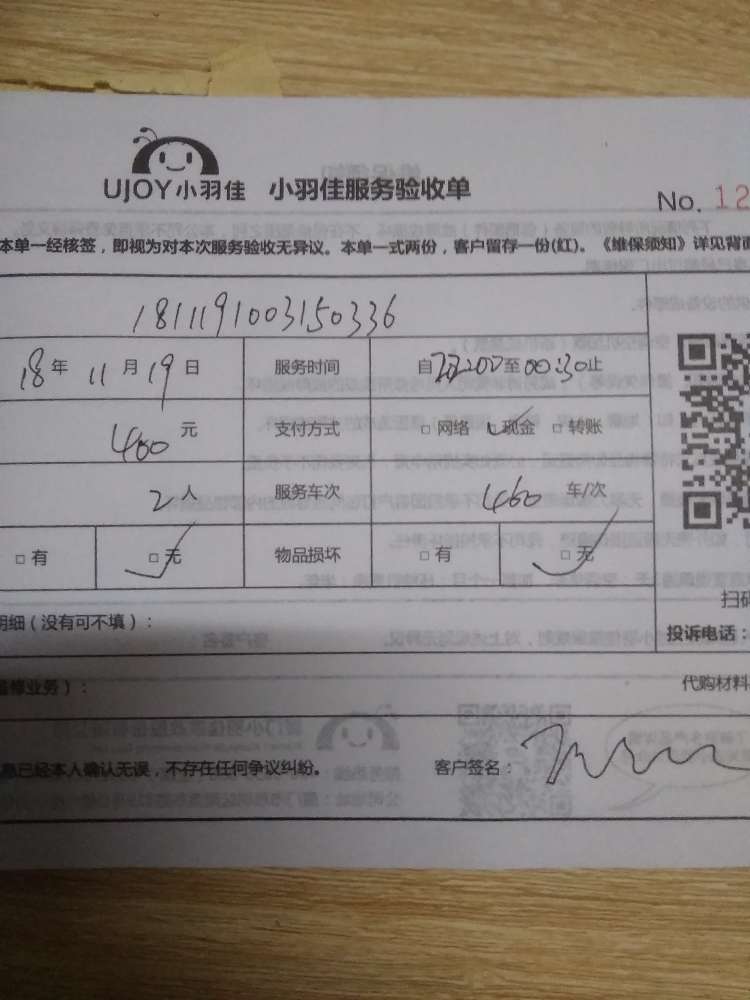 UJOY小羽佳 小羽佳服务验收单
No. 12
本单一经核签，即视为对本次服务验收无异议。本单一式两份，客户留存一份(红)。《维保须知》详见背面
1811191003150336
18年 11月19日 服务时间 自22:00至00:30止
460元 支付方式 □网络 ☑现金 □转账
2人 服务车次 460 车/次
□有 ☑无 物品损坏 □有 ☑无
扫码
明细（没有可不填）：
投诉电话：
维修业务）：
代购材料
息已经本人确认无误，不存在任何争议纠纷。 客户签名：